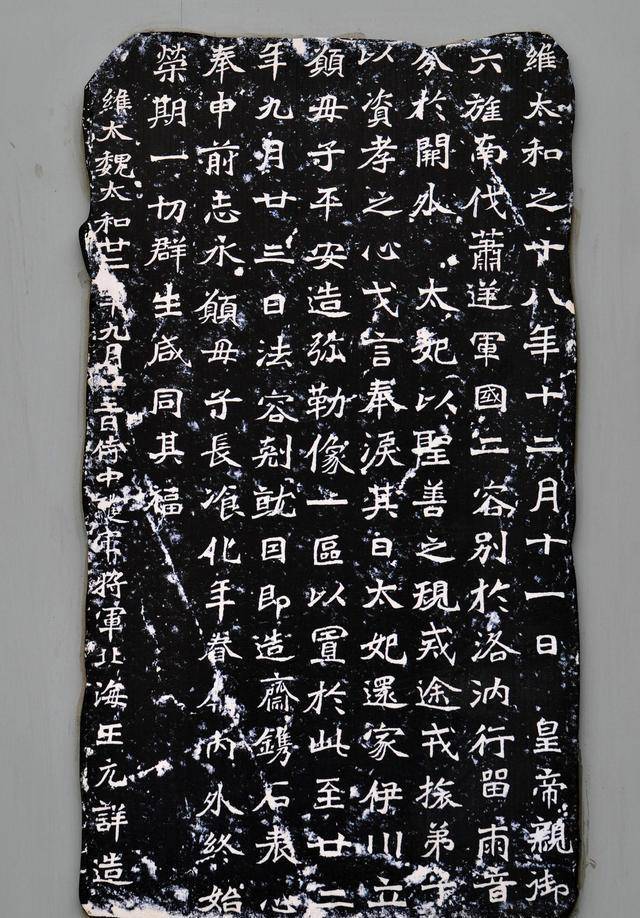 維太和之十八年十二月十一日 皇帝親御
六旌南伐蕭逆軍國二容別於洛汭行留兩音
分於闕外 太妃以聖善之規戒途戎旅弟子
以資孝之心戈言奉淚其日太妃還家伊川立
願母子平安造弥勒像一區以置於此至廿二
年九月廿三日法容剋就因即造齋鐫石表心
奉申前志永願母子長飡化年眷內外終始
榮期一切群生咸同其福
維太魏太和廿二年九月廿三日侍中護軍將軍北海王元詳造